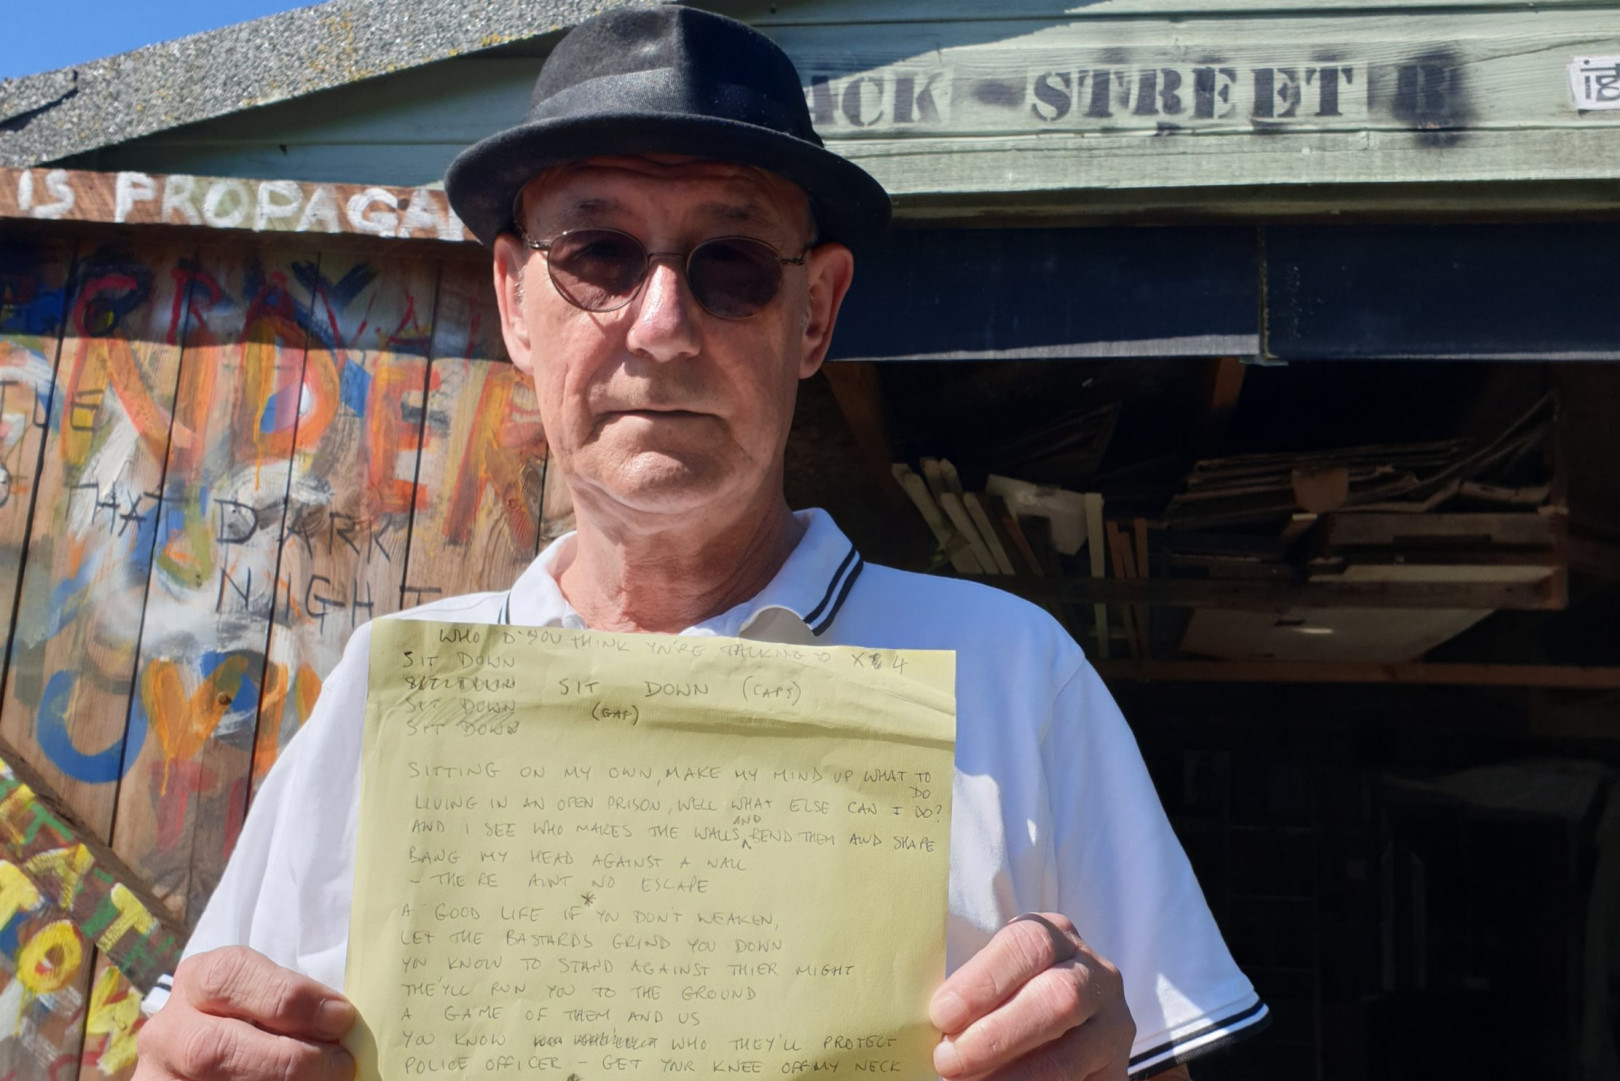 ACK STREET
IS PROPAGA
THAT DARK
NIGHT
WHO D'YOU THINK YN'RE TALKING TO X 4
SIT DOWN
SIT DOWN SIT DOWN (CAPS)
SIT DOWN (GAP)
SIT DOWN
SITTING ON MY OWN, MAKE MY MIND UP WHAT TO
DO
LIVING IN AN OPEN PRISON, WELL WHAT ELSE CAN I DO?
AND
AND I SEE WHO MAKES THE WALLS, BEND THEM AND SHAPE
BANG MY HEAD AGAINST A WALL
- THERE AINT NO ESCAPE
A GOOD LIFE IF * YN DON'T WEAKEN,
LET THE BASTARDS GRIND YOU DOWN
YN KNOW TO STAND AGAINST THIER MIGHT
THEY'LL RUN YOU TO THE GROUND
A GAME OF THEM AND US
YOU KNOW WHO THEY'LL PROTECT
POLICE OFFICER - GET YNR KNEE OFF MY NECK